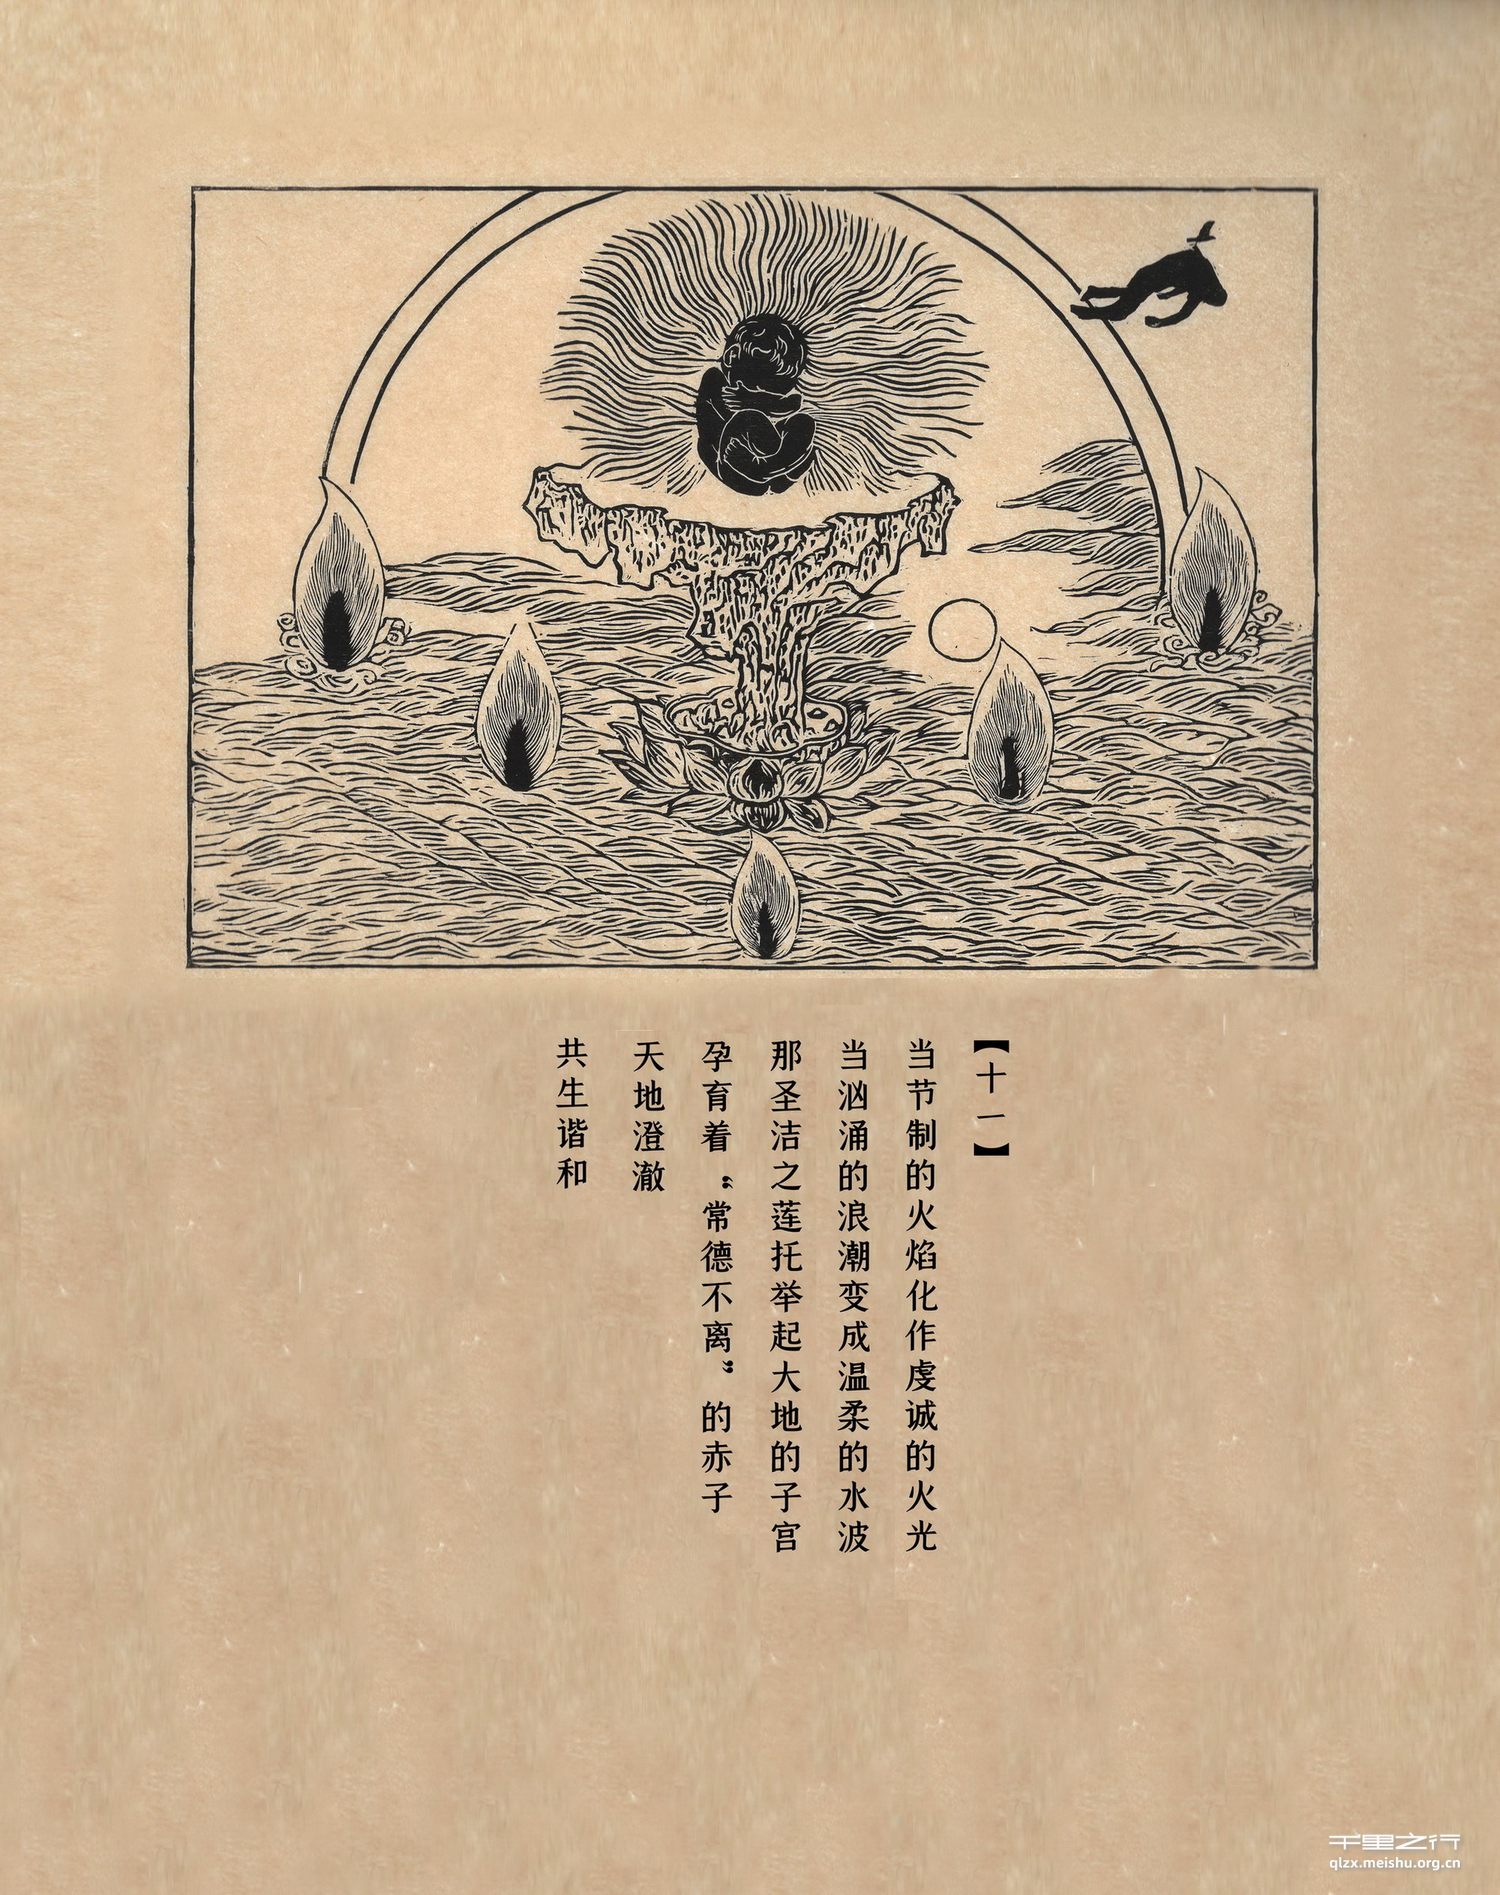 【十一】
当节制的火焰化作虔诚的火光
当汹涌的浪潮变成温柔的水波
那圣洁之莲托举起大地的子宫
孕育着“常德不离”的赤子
天地澄澈
共生谐和
千里之行
qlzx.meishu.org.cn